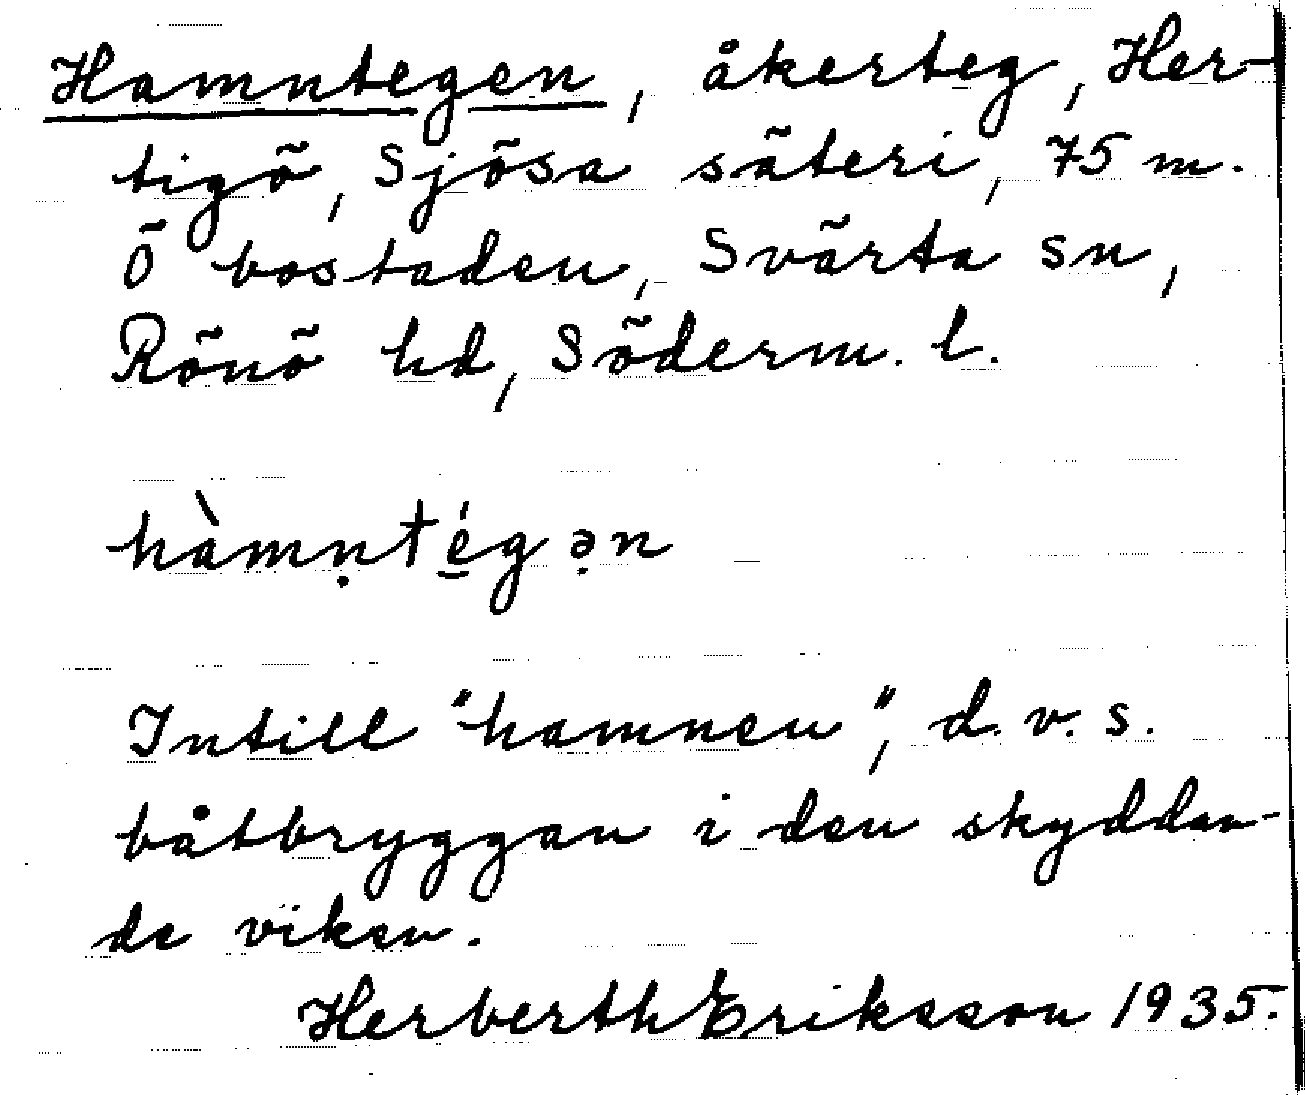 Hamntegen, åkerteg, Her-
tigö, Sjösa säteri, 75 m.
Ö bostaden, Svärta sn,
Rönö hd, Söderm. l.
hàmṇté̠gə̣n
Intill "hamnen", d.v.s.
båtbryggan i den skyddan-
de viken.
Herberth Eriksson 1935.